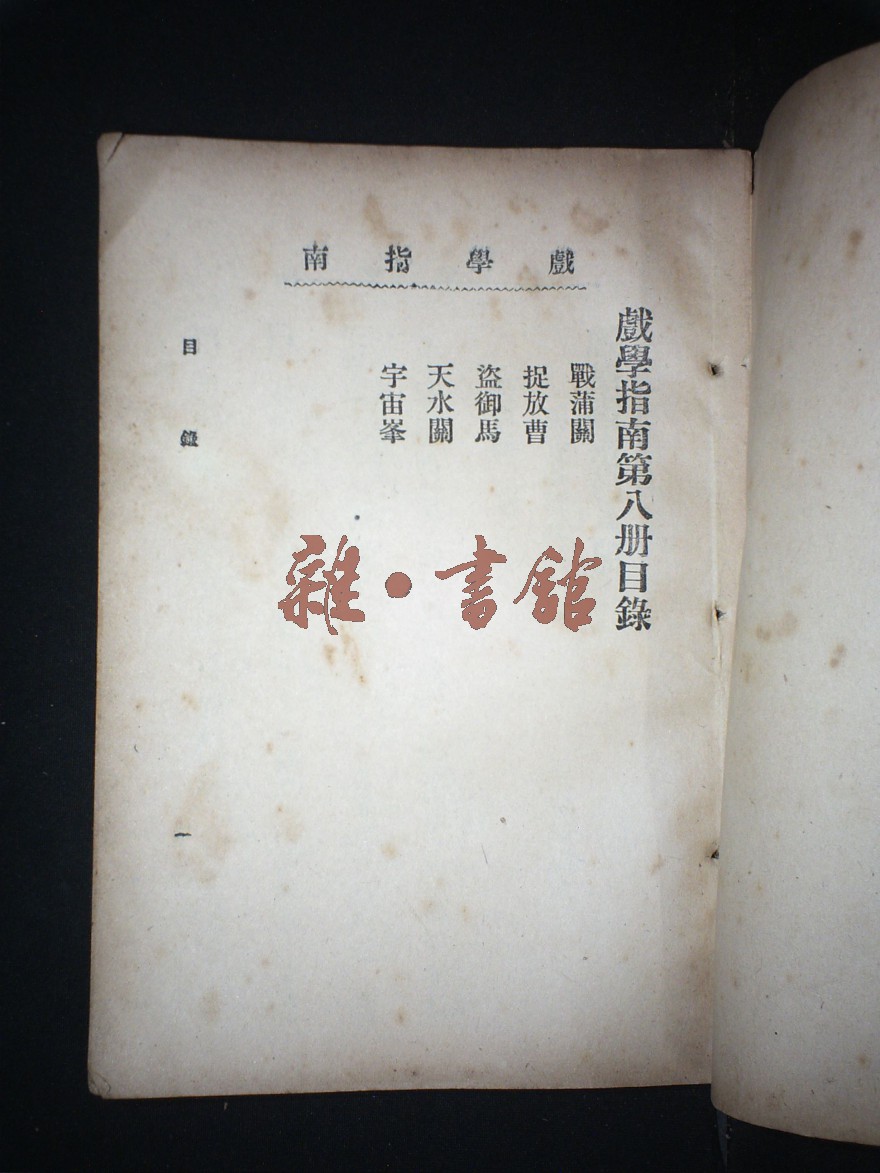 戲學指南
戲學指南第八册目錄
戰蒲關
捉放曹
盜御馬
天水關
宇宙峯
目錄
一
雜·書館